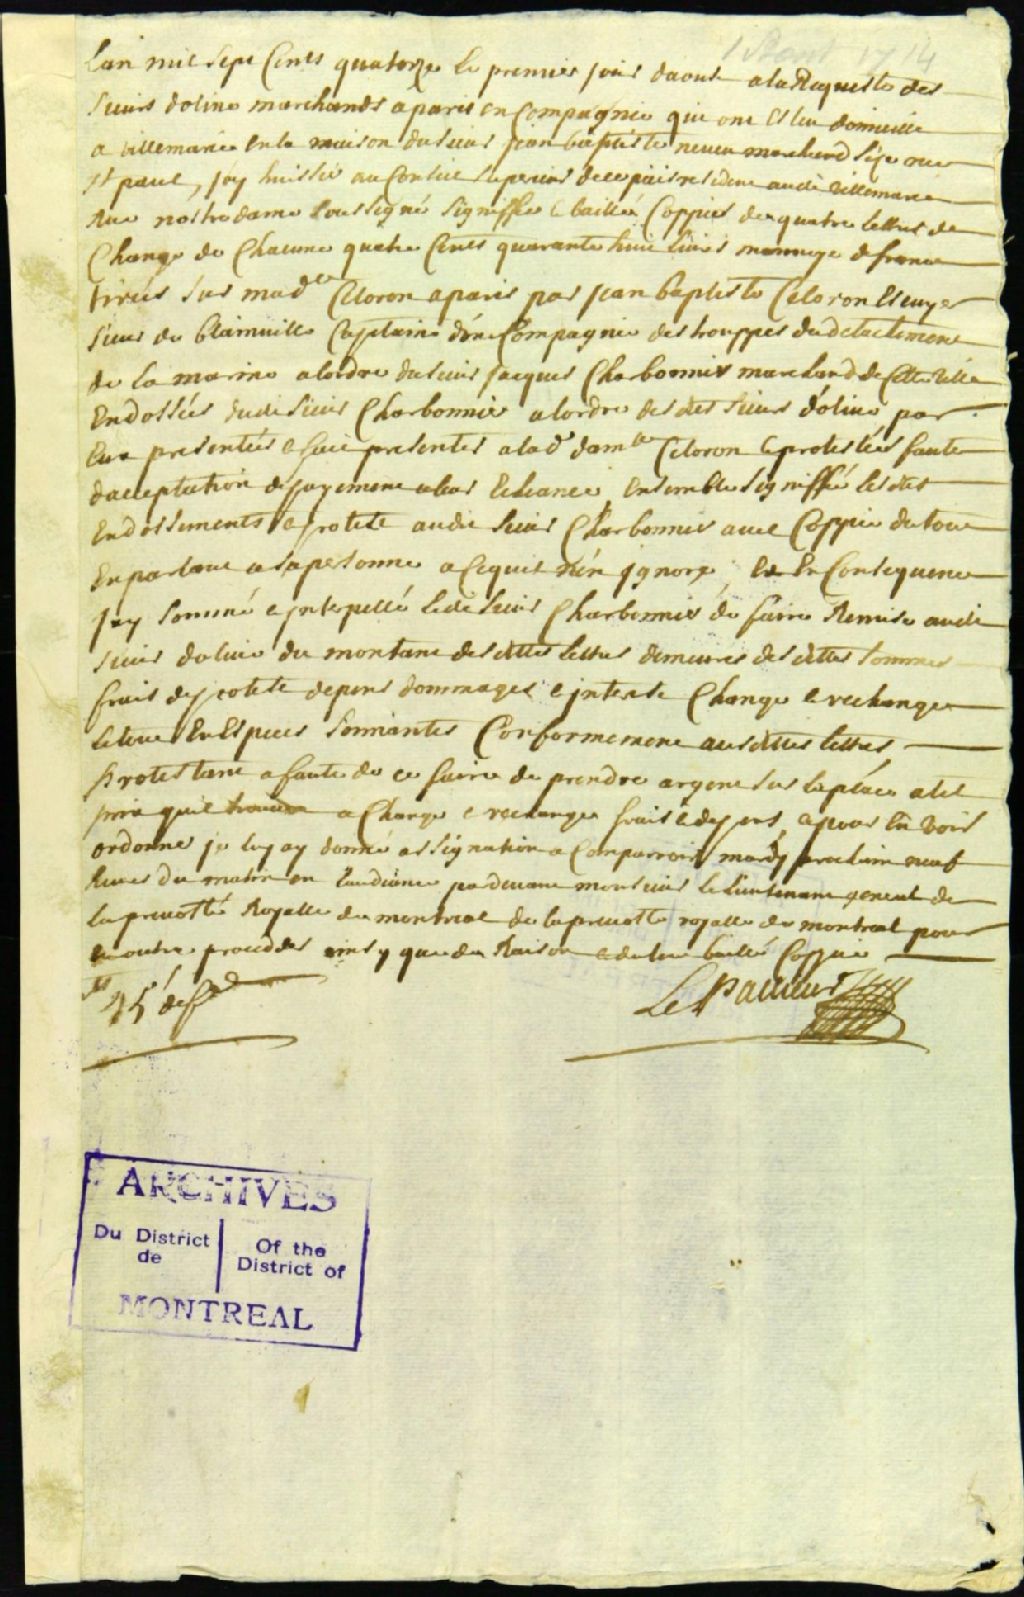 1 Aout 1714
Lan mil sept Cents quatorze le premier jour daoust a la Requeste des
Sieurs dolino marchands a paris en Compagnie qui ont Esleu domicille
a villemarie en la maison du sieur jean baptiste neveu marchand size rue
St paul, jay huissier au Conseil superieur de ce païs residant audit villemarie
Rue nostre dame soussigné signiffié & baillé Coppies de quatre lettres de
Change de Chacune quatre Cents quarante huit livres monnoye de france
tirées sur madlle Celoron a paris par jean baptiste Celoron Escuyer
Sieur de blainville Capitaine dune Compagnie des trouppes du detachement
de la marine a lordre du sieur jacques Charbonnier marchand de Cette ville
Endossées dudit sieur Charbonnier a lordre des dits sieurs dolino par
Eux presentées & fait presenter a lad. damlle Celoron & protestées faute
dacceptation & payement a leur Echeance, Ensemble signiffié lesdits
Endossements & protest audit sieur Charbonnier avec Coppie du tout
En parlant a sa personne a Ce quil nen jgnore, Et En Consequence
jay sommé & jnterpellé ledit sieur Charbonnier de faire Remise audit
sieur dolino du montant desdittes lettres desdittes sommes
frais de protest depens dommages & jnterests Change & rechange
le tout En Especes sonnantes Conformement ausdittes lettres
Protestant a faute de ce faire de prendre argent sur la place a tel
prix quil a Change & rechange frais & depens, & pour En voir
ordonner je luy ay donné assignation a Comparroir mardy prochain neuf
heures du matin en laudiance pardevant monsieur le lieutenant general de
la prevosté Royalle de montreal de la prevosté royalle de montreal pour
En outre proceder ainsy que de Raison & du tout baillé Coppie
45s de
Le Pailleur
ARCHIVES
Du District de
Of the District of
MONTREAL